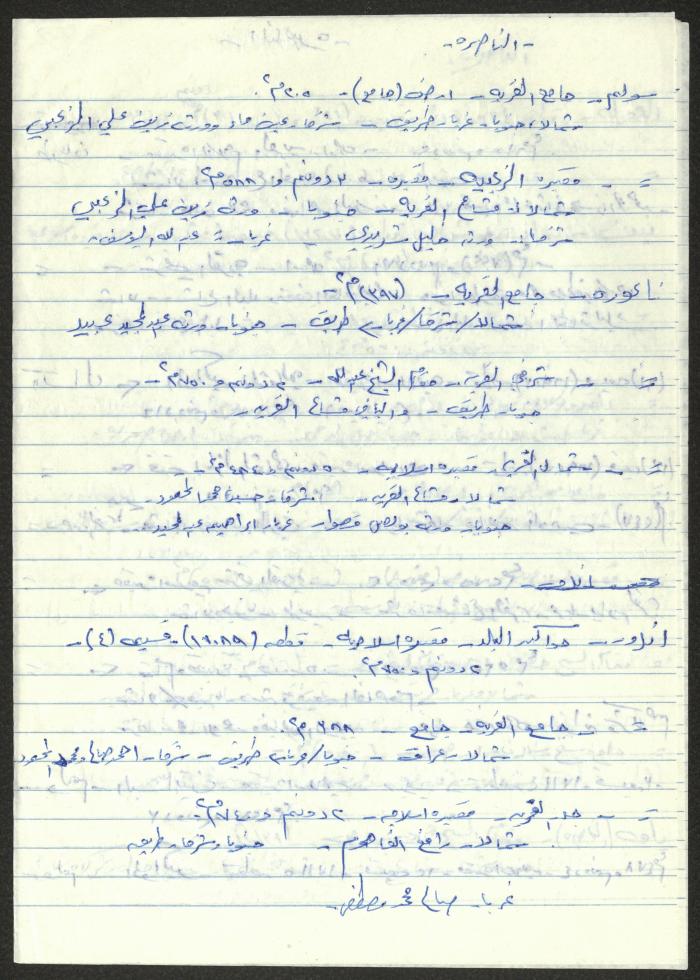 - الناصرة -
سولم - جامع القرية - ارض (جامع) - ٢٠٥ م٢.
شمالا، جنوبا، غربا، طريق - شرقا، عين ماء وورثة زين علي الزعبي
= - مقبرة الزعبيه - مقبرة - ٢ دونم و ٥٨٨ م٢.
شمالا: مشاع القرية - جنوبا - ورثة زين علي الزعبي
شرقا: ورثة خليل غربا: عبد الله اليوسف
ناعورة - جامع القرية - (٣٩٧) م٢ -
شمالا/شرقا/غربا، طريق - جنوبا، ورثة عبد المجيد عبيد
= - شرقي القرية - مقام الشيخ عبد الله - ٢ دونم و ٧٥٠ م٢ -
جنوبا، طريق - والباقي مشاع القرية -
= - شمال القرية - مقبرة اسلامية - ٥ دونم و م٢ -
شمالا، مشاع القرية - شرقا، حسين محمد المحمود
جنوبا، ورثة بولص غربا، ابراهيم عبد المجيد
اندور - حواكير البلد - مقبرة اسلامية - قطعة (١٧٠٨٩) - قسيمة (٤) -
٢ دونم و ٧٥٠ م٢.
= - جامع القرية - جامع - ٦٨٨ م٢.
شمالا، عراق - جنوبا/غربا، طريق - شرقا، احمد صالح ومحمد المحمود
= - القرية - مقبرة اسلامية - ٢ دونم و م٢.
شمالا، رافع الفاهوم - جنوبا وشرقا، طريق
غربا، صالح محمد مصطفى -